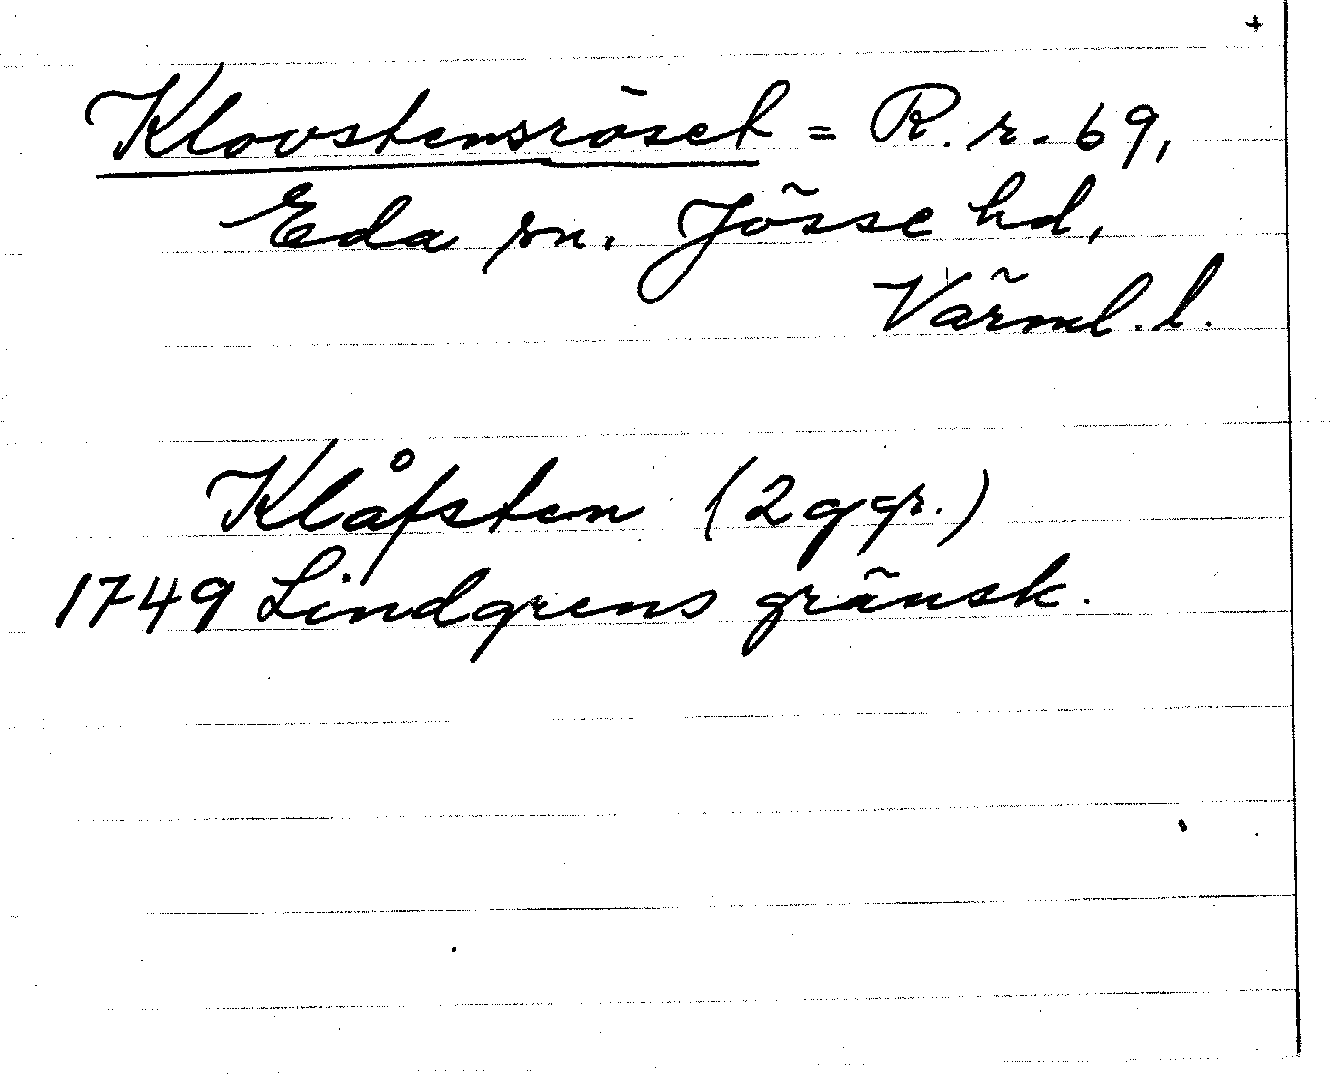 +
Klovstensröset = R.r. 69,
Eda sn. Jösse hd,
Värml. l.
Klåfsten (2 ggr.)
1749 Lindgrens gränsk.